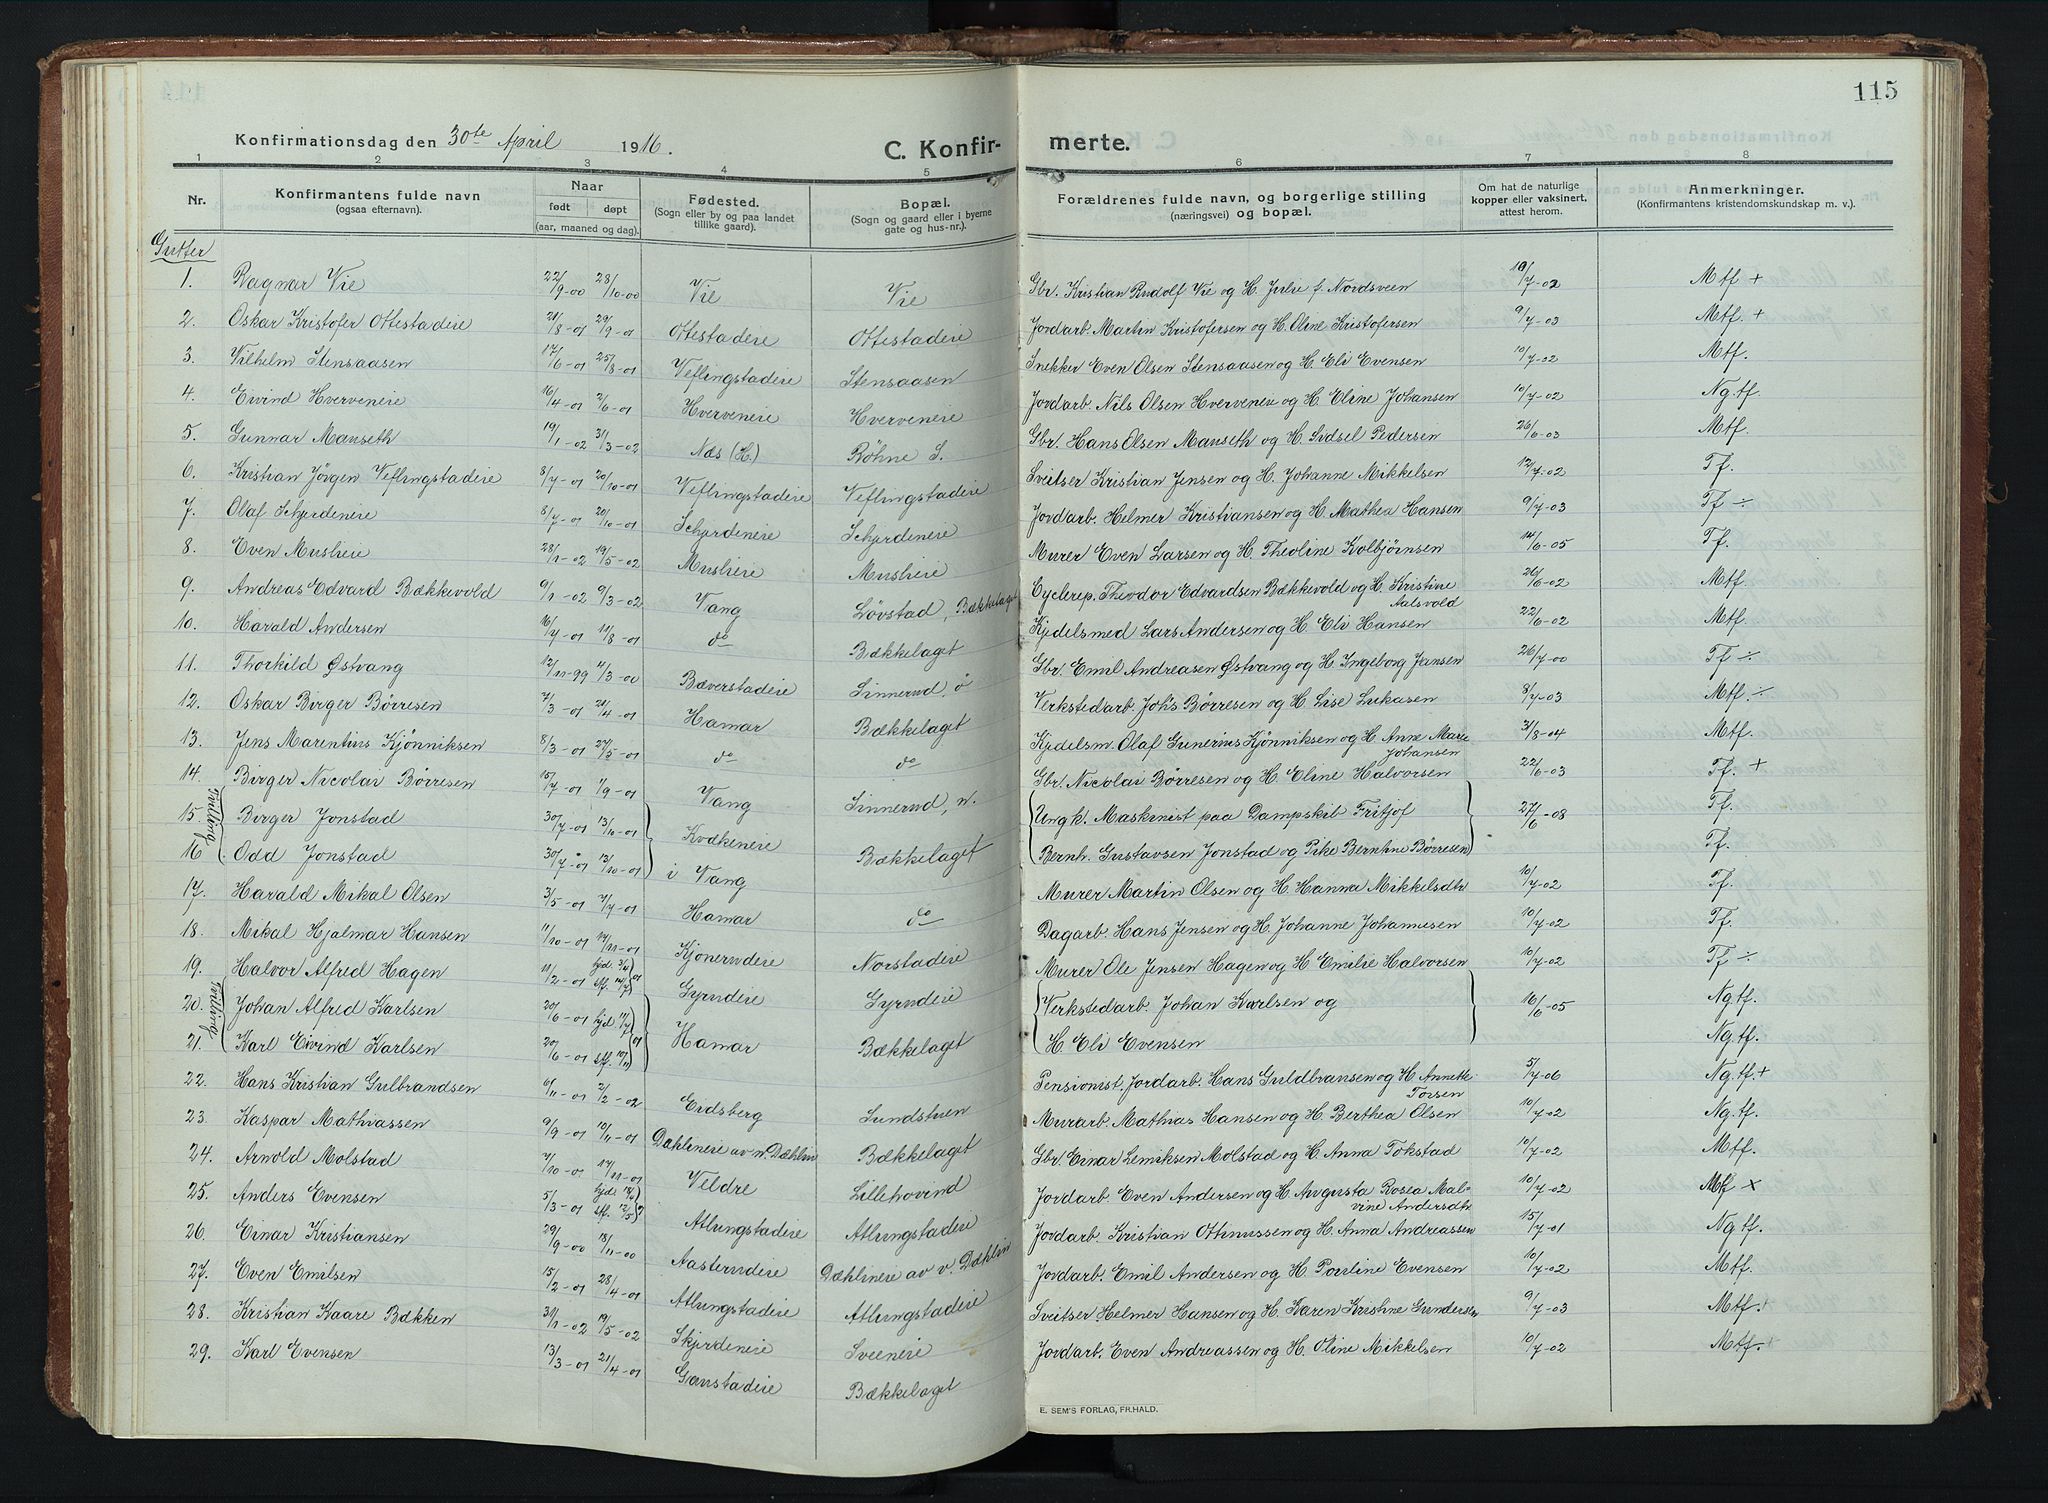 115
Konfirmationsdag den 30te April 1916.
C. Konfir-
merte.
1 2 3 4 5 6 7 8
Nr.
Konfirmantens fulde navn
(ogsaa efternavn).
Naar
født døpt
(aar, maaned og dag).
Fødested.
(Sogn eller by og paa landet
tillike gaard).
Bopæl.
(Sogn og gaard eller i byerne
gate og hus-nr.).
Forældrenes fulde navn, og borgerlige stilling
(næringsvei) og bopæl.
Om hat de naturlige
kopper eller vaksinert,
attest herom.
Anmerkninger.
(Konfirmantens kristendomskundskap m. v.).
Gutter
1. Ragnar Vie 22/9-00 28/10-00 Vie Vie Gbr. Kristian Rudolf Vie og H. Julie f. Nordsveen 10/7-02 Mtf +
2. Oskar Kristofer Ottestadeie 21/8-01 29/9-01 Ottestadeie Ottestadeie Jordarb. Martin Kristofersen og H. Oline Kristofersen 9/7-03 Mtf. +
3. Vilhelm Stensaasen 17/6-01 25/8-01 Veflingstadeie Stensaasen Snekker Even Olsen Stensaasen og H. Eli Evensen 10/7-02 Mtf.
4. Eivind Hverveneie 16/4-01 2/6-01 Hverveneie Hverveneie Jordarb. Nils Olsen Hverveneie og H. Eline Johansen 10/7-02 Ng.tf.
5. Gunnar Manseth 19/1-02 31/3-02 Næs (H.) Røhne S. Gbr. Hans Olsen Manseth og H. Sidsel Pedersen 26/6-03 Mtf.
6. Kristian Jørgen Veflingstadeie 8/7-01 20/10-01 Veflingstadeie Veflingstadeie Sveitser Kristian Jensen og H. Johanne Mikkelsen 12/7-02 Tf.
7. Olaf Schjerdeneie 8/7-01 20/10-01 Schjerdeneie Schjerdeneie Jordarb. Helmer Kristiansen og H. Mathea Hansen 9/7-03 Tf ÷
8. Even Muslieie 28/1-02 19/5-02 Muslieie Muslieie Murer Even Larsen og H. Theoline Kolbjørnsen 14/6-05 Tf.
9. Andreas Edvard Bækkevold 9/1-02 9/3-02 Vang Løvstad, Bækkelaget Cyclerep. Theodor Edvardsen Bækkevold og H. Kristine 26/6-02 Mtf.
Aalsvold
10. Harald Andersen 16/7-01 11/8-01 do Bækkelaget Kjedelsmed Lars Andersen og H. Eli Hansen 22/6-02 Mtf.
11. Thorkild Østvang 12/11-99 4/3-00 Bæverstadeie Sinnerud, ø Gbr. Emil Andreasen Østvang og H. Ingeborg Jansen 26/7-00 Tf ÷
12. Oskar Birger Børresen 7/3-01 21/4-01 Hamar Bækkelaget Verkstedarb. Johs Børresen og H. Lise Lukasen 8/7-03 Mtf ÷
13. Jens Marentius Kjønniksen 8/3-01 27/5-01 do do Kjedelsm. Olaf Gunerius Kjønniksen og H Anne Marie 3/8-04 Mtf.
Johansen
14. Birger Nicolai Børresen 15/7-01 1/9-01 Vang Sinnerud, n. Gbr. Nicolai Børresen og H. Eline Halvorsen 22/6-03 Tf. +
Tvilling
15. Birger Jonstad 30/7-01 13/10-01 Kvækeneie Bækkelaget Ungk. Maskinist paa Dampskib Fritjof 27/6-08 Tf.
16 Odd Jonstad 30/7-01 13/10-01 i Vang Bernh. Gustavsen Jonstad og Pike Bernhne Børresen Tf.
17. Harald Mikal Olsen 3/5-01 7/7-01 Hamar do Murer Martin Olsen og H. Hanna Mikkelsdtr 10/7-02 Tf.
18. Mikal Hjalmar Hansen 11/10-01 17/11-01 Kjonerudeie Norstadeie Dagarb. Hans Jensen og H. Johanne Johannesen 10/7-02 Tf.
19. Halvor Alfred Hagen 11/2-01 hjd. 3/4 stf. 14/7 01 Gyrudeie Gyrudeie Murer Ole Jensen Hagen og H Emilie Halvorsen 10/7-02 Tf ÷
Tvilling
20. Johan Alfred Karlsen 20/6-01 hjd 11/7 Hamar Bækkelaget Verkstedarb. Johan Karlsen og 16/6-05 Ng.tf.
21. Karl Eivind Karlsen 20/6-01 stf. 10/11 01 H Eli Evensen Ng.tf.
22. Hans Kristian Gulbrandsen 6/11-01 2/2-02 Eidsberg Sundstuen Pensionist. Jordarb. Hans Guldbransen og H Annette 5/7-06 Ng.tf.+
Torsen
23. Kaspar Mathiassen 9/9-01 10/11-01 Dæhlineie av n. Dæhlin Bækkelaget Murarb. Mathias Hansen og H. Berthea Olsen 10/7-02 Ng.tf.
24. Arnold Molstad 7/10-01 17/11-01 Veldre Lillehovind Gbr. Einar Lemiksen Molstad og H Anna Tokstad 10/7-02 Mtf.
25. Anders Evensen 5/3-01 Atlungstadeie Atlungstadeie Jordarb. Even Andersen og H Augusta Rosea Mal- 10/7-02 Mtf ×
vine Andersdtr
26. Einar Kristiansen 29/9-00 18/11-00 Aasterudeie Dæhlineie av v. Dæhlin Jordarb. Kristian Othmussen og H. Anna Andreassen 15/7-01 Ng tf.
27. Even Emilsen 15/2-01 28/4-01 Atlungstadeie Atlungstadeie Jordarb. Emil Andersen og H Pouline Evensen 10/7-02 Mtf.
28. Kristian Kaare Bækken 31/1-02 19/5-02 Skjerdeneie Sveeneie Sveitser Helmer Hansen og H. Karen Kristine Gundersen 9/7-03 Mtf.+
29. Karl Evensen 13/3-01 21/4-01 Gaustadeie Bækkelaget Jordarb. Even Andreassen og H. Oline Mikkelsen 10/7-02 Mtf.+
E. SEM'S FORLAG, FR.HALD.